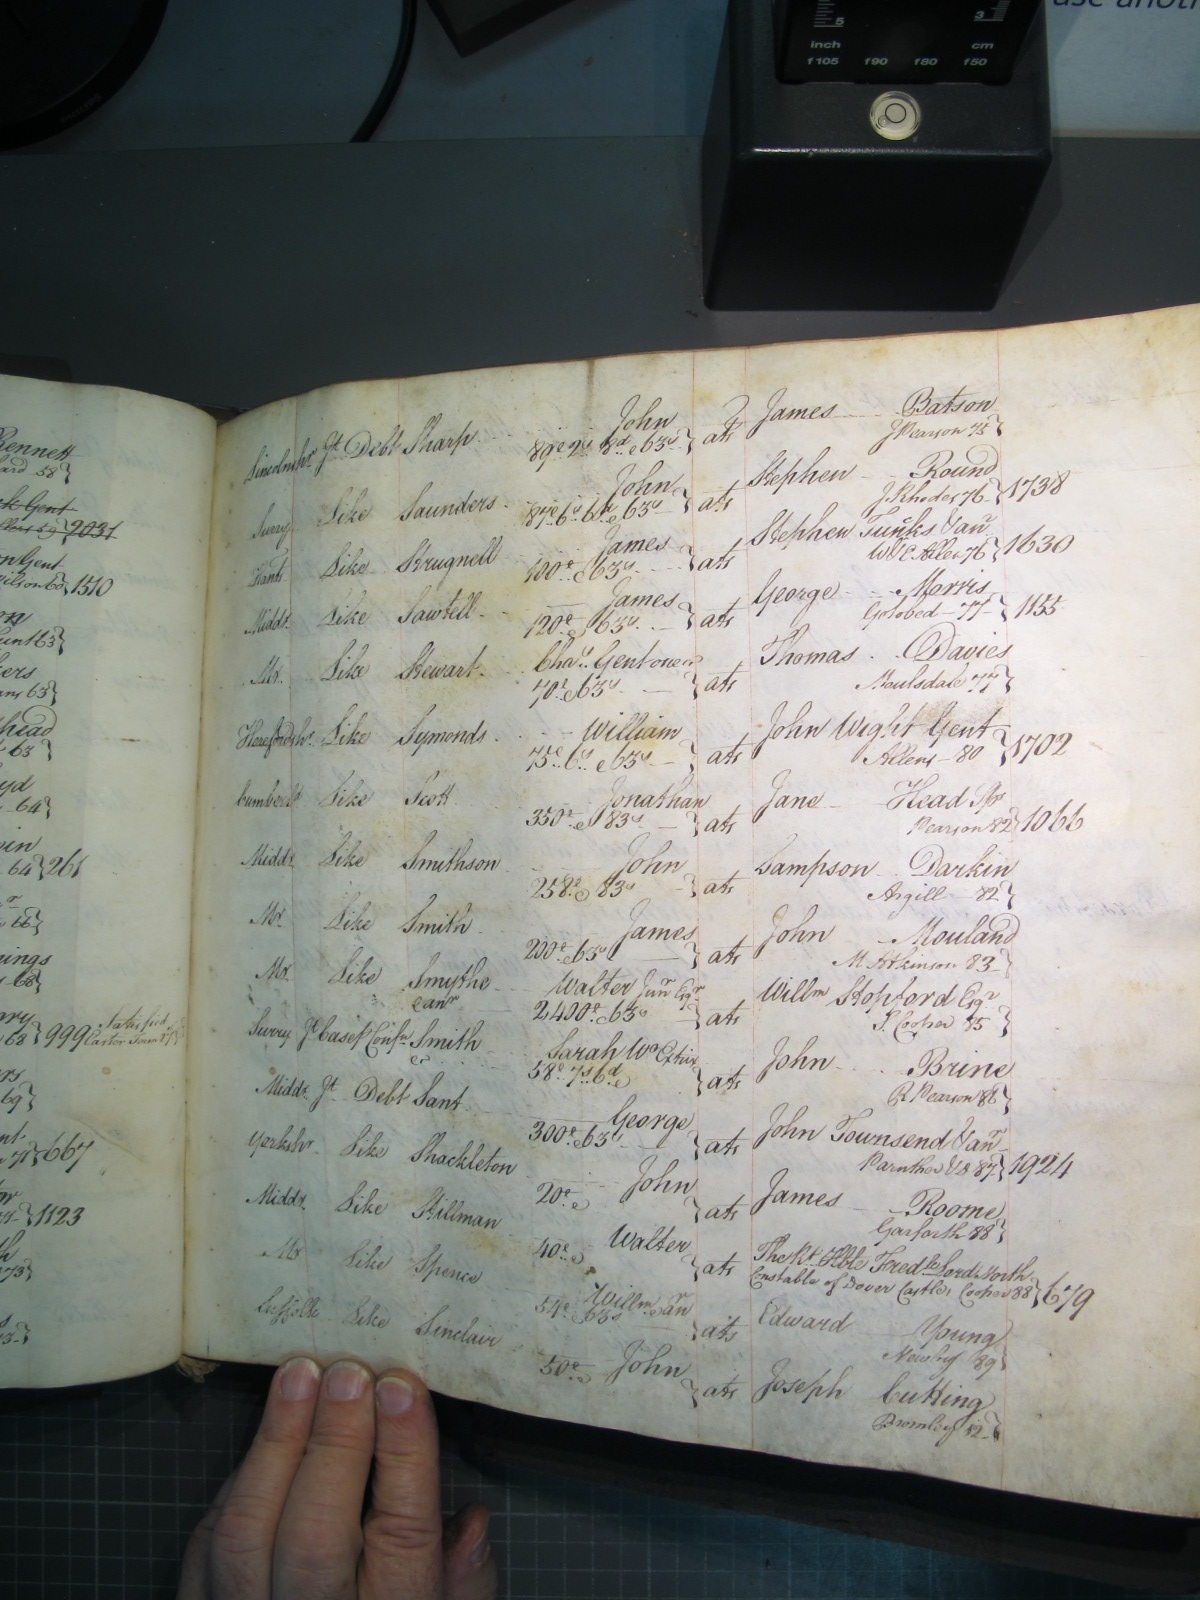 use anoth
5 3
inch cm
f105 f90 f80 f50
Rennett
58}
Gent
2031
Gent
60} 1510
63}
63}
head
63}
64}
64} 261
66}
68}
68} 999 Satisfied
69}
71} 667
1123
73}
Lincolnshr. Jt. Debt Sharp John } ats James Batson
89£ 2s 8d & 63s J Pearson 75}
Surry Like Saunders John } ats Stephen Round
87£ 6s & 63s J. Rhodes 76 } 1738
Hants Like Strugnell James } ats Stephen Tunks Junr
100£ & 63s W & E Allen 76 } 1630
Middx Like Sawtell James } ats George Morris
120£ & 63s Golobed 77 } 1155
Mx. Like Stewart Chas. Gent one &c } ats Thomas Davies
70£ & 63s Moulsdale 77 }
Herefordshr. Like Symonds William } ats John Wight Gent
75£ 6s & 63s Allens 80 } 1702
Cumberld Like Scott Jonathan } ats Jane Head Spr
350£ & 83s Pearson 82 } 1066
Middx Like Smithson John } ats Sampson Darkin
258£ & 83s Argill 82 }
Mx. Like Smith James } ats John Mouland
200£ & 63s M Atkinson 83 }
Mx. Like Smythe Walter Junr Esqr } ats Willm Stopford Esqr
& anr 2400£ & 63s S. Cooper 85 }
Surry Jt. Case p Confn Smith Sarah Wo Extrix } ats John Brine
58£ 7s 6d R Pearson 86 }
Middx Jt. Debt Sant George } ats John Townsend Junr
300£ & 63s Parnther 87 } 1924
Yorkshr Like Shackleton John } ats James Roome
20£ & Garforth 88 }
Middx Like Skillman Walter } ats The Rt. Hble Fredk Lord North
40£ & Constable of Dover Castle, Cooper 88 } 679
Mx Like Spence Willm an } ats Edward Young
54£ 63s Newby 89 }
Suffolk Like Sinclair John } ats Joseph Cutting
50£ & Bromley 12 }